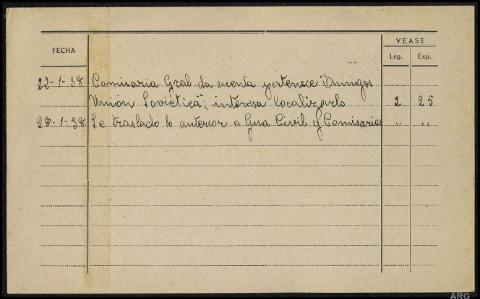 VEASE
FECHA
Leg. Exp.
22-1-38 Comisaria Gral da cuenta pertenece "Amigos
Unión Soviética"; interesa localizarlo 2 25
28-1-38 Se traslado lo anterior a Gna Civil y Comisarias " "
ARG